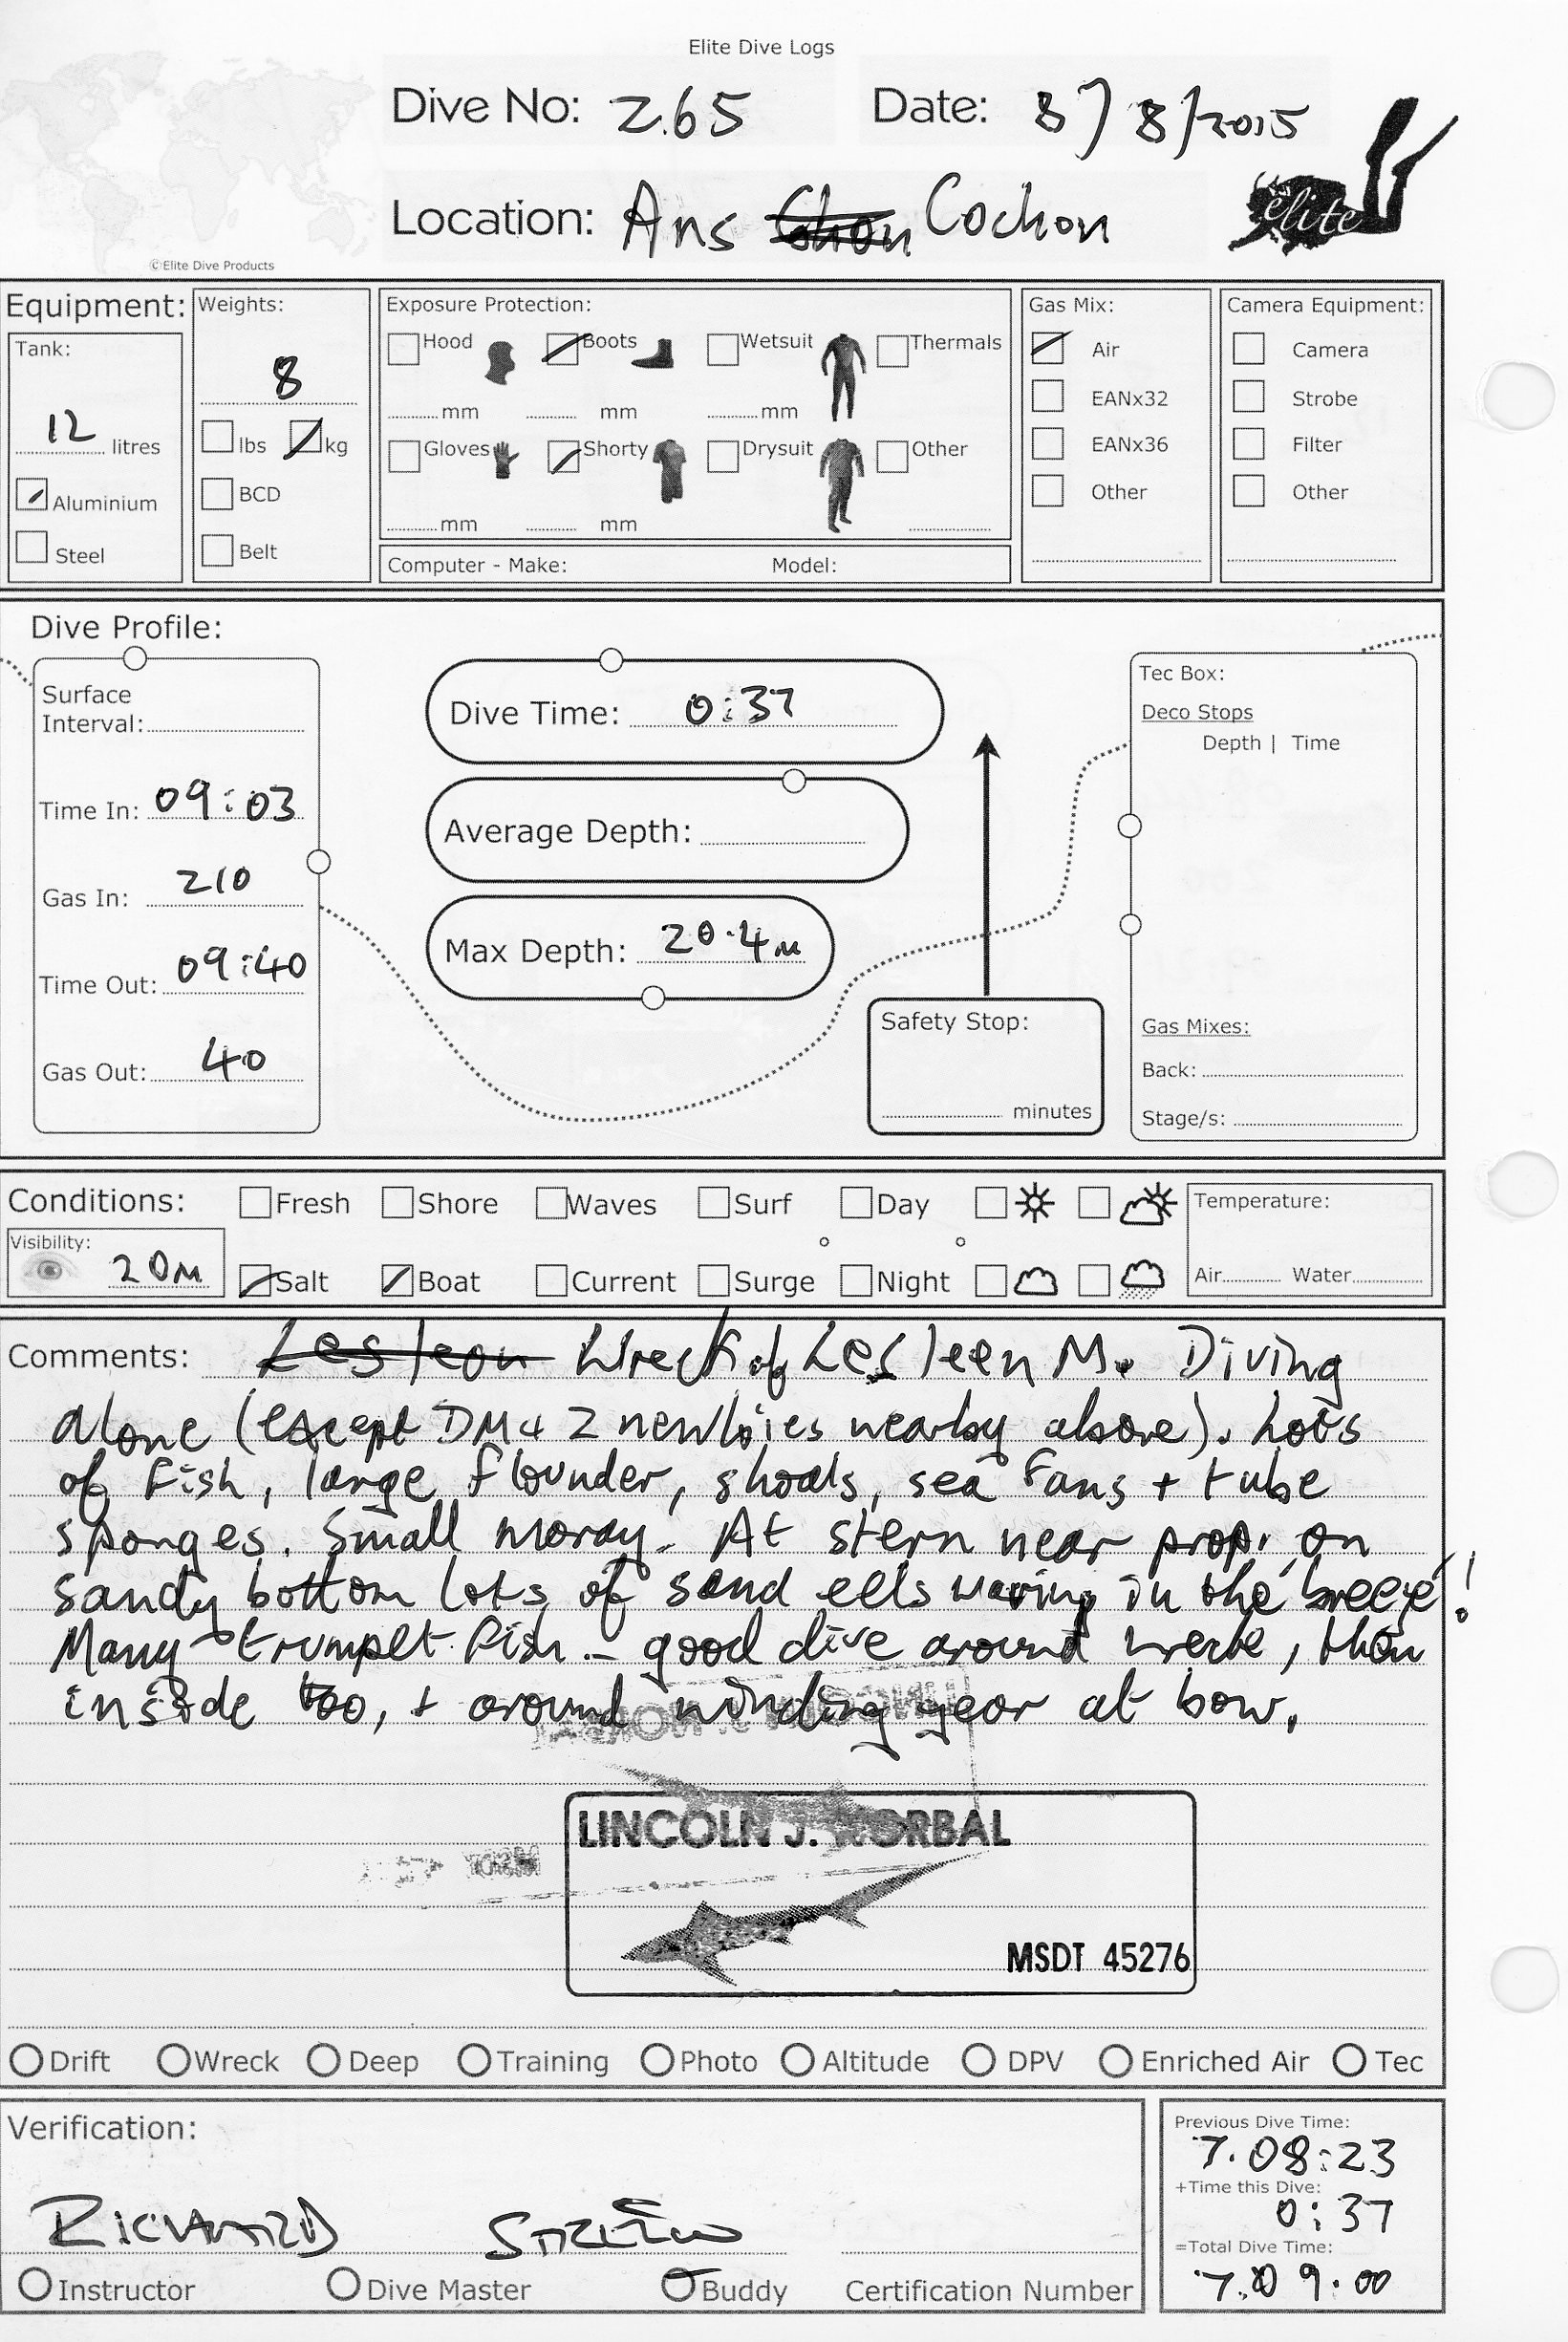 Elite Dive Logs
Dive No: 265 Date: 8/8/2015
Location: Ans Cochon
élite
©Elite Dive Products
Equipment:
Tank:
12 litres
Aluminium
Steel
Weights:
8
lbs kg
BCD
Belt
Exposure Protection:
Hood Boots Wetsuit Thermals
mm mm mm
Gloves Shorty Drysuit Other
mm mm
Computer - Make: Model:
Gas Mix:
Air
EANx32
EANx36
Other
Camera Equipment:
Camera
Strobe
Filter
Other
Dive Profile:
Surface
Interval:
Time In: 09:03
Gas In: 210
Time Out: 09:40
Gas Out: 40
Dive Time: 0:37
Average Depth:
Max Depth: 20.4m
Safety Stop:
minutes
Tec Box:
Deco Stops
Depth | Time
Gas Mixes:
Back:
Stage/s:
Conditions: Fresh Shore Waves Surf Day
Visibility: 20m
Salt Boat Current Surge Night
Temperature:
Air Water
Comments: Lesleon Wreck of Lesleen M. Diving
alone (except DM + 2 newbies nearby above). Lots
of fish, large flounder, shoals, sea fans + tube
sponges. Small moray. At stern near prop. on
sandy bottom lots of sand eels waving in the 'breeze'!
Many trumpet fish - good dive around wreck, then
inside too, + around winding gear at bow.
LINCOLN J. NORBAL
MSDT 45276
Drift Wreck Deep Training Photo Altitude DPV Enriched Air Tec
Verification:
RICHARD
Instructor Dive Master Buddy Certification Number
Previous Dive Time:
7.08:23
+Time this Dive:
0:37
=Total Dive Time:
7.09:00